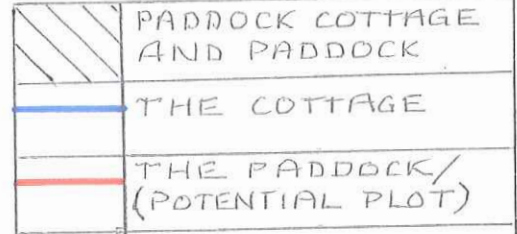 PADDOCK COTTAGE
AND PADDOCK
THE COTTAGE
THE PADDOCK/
(POTENTIAL PLOT)